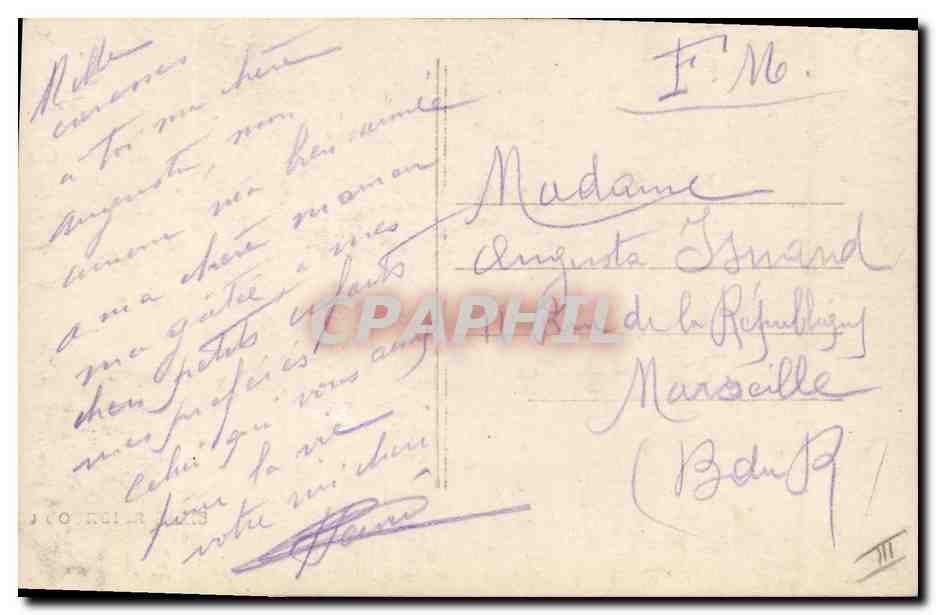 Mille
caresses
a toi ma chère
Augusta, mon
amour ma bien aimée
a ma chère maman
ma gâtée, a mes
chers petits enfants
mes préférés
celui qui vous aime
pour la vie
votre chéri
F. M.
Madame
Augusta Isnard
Rue de la République
Marseille
(B du R)
III
CPAPHIL